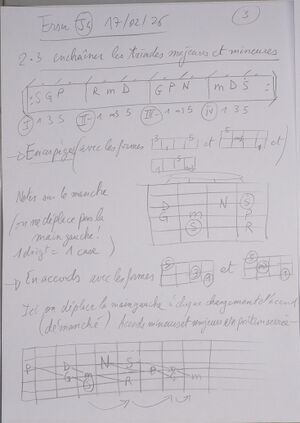 Ersu J4 17/02/26 3
2.3 enchaîner les triades majeures et mineures
S G P | R m D | G P N | m D S
I 1 3 5 II- 1 m3 5 III- 1 m3 5 IV 1 3 5
→ En arpèges (avec les formes et et)
Notes sur le manche
(on ne déplace pas la
main gauche !
1 doigt = 1 case)
D N S
G m P
S R
→ En accords avec les formes et
Ici on déplace la main gauche à chaque changement d'accord
(démanché) Accords mineurs et majeurs en position serrée
P D N S
G m R P m
S